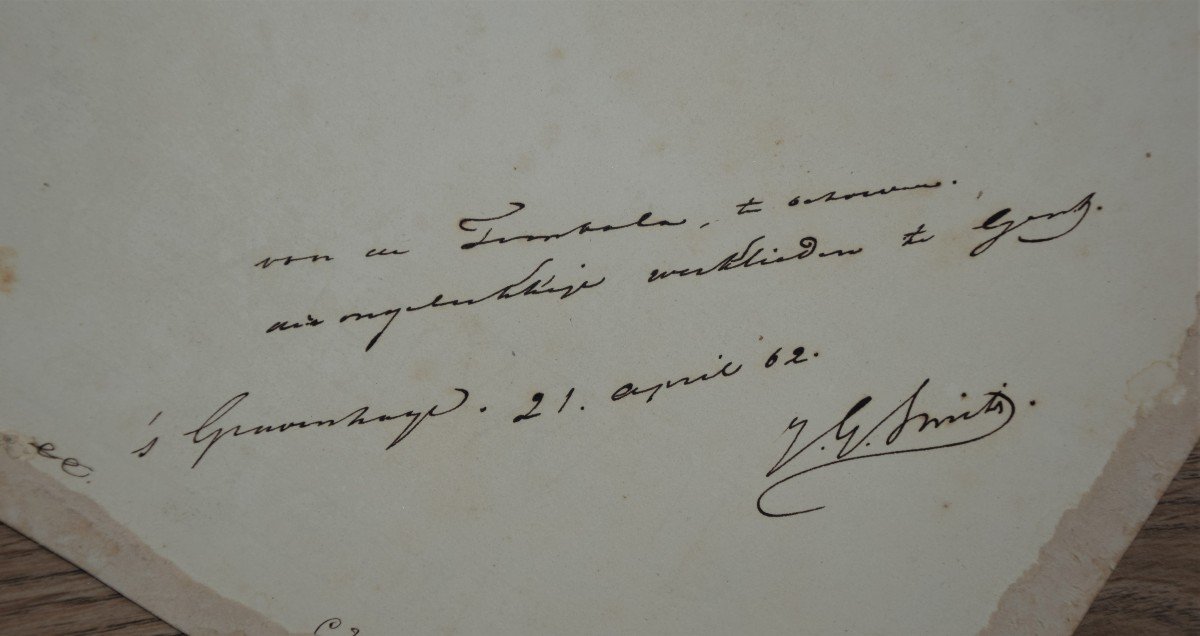 voor de Tombola, te
der ongelukkige werklieden te Gent.
's Gravenhage. 21. april 62.
J. G. Smits.